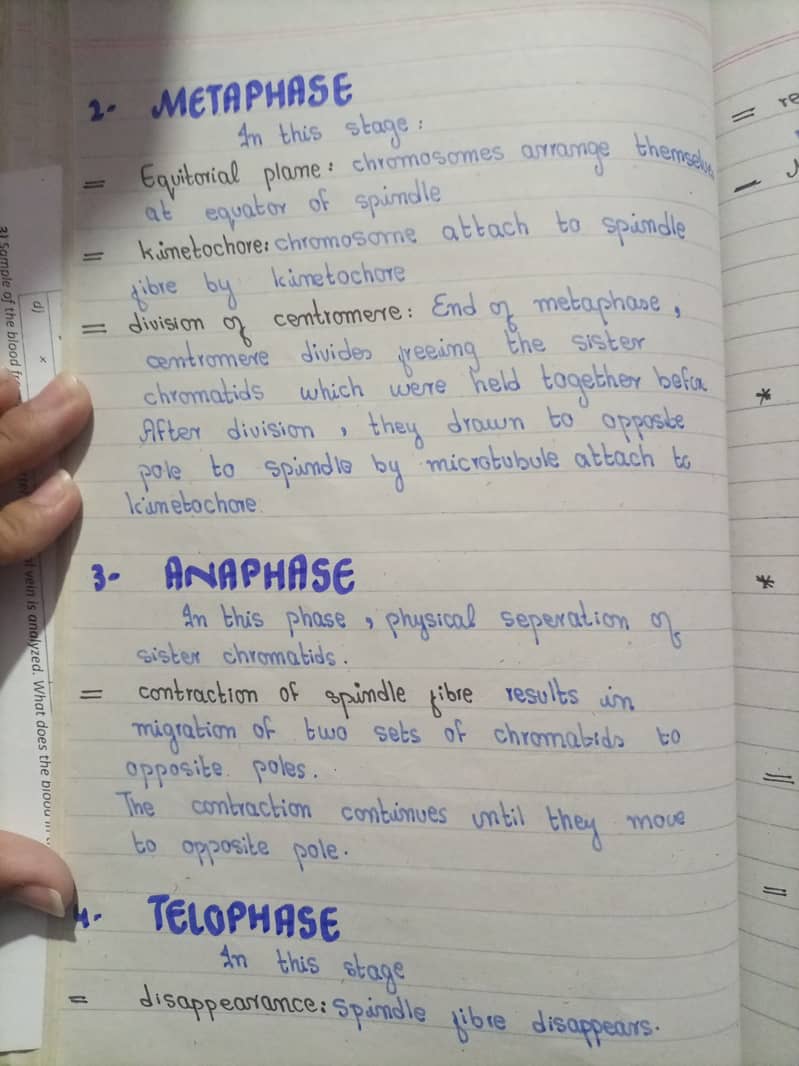 2- METAPHASE
In this stage:
= Equitorial plane: chromosomes arrange themselves
at equator of spindle
= kinetochore: chromosome attach to spindle
fibre by kinetochore
= division of centromere: End of metaphase,
centromere divides freeing the sister
chromatids which were held together before
After division, they drawn to opposite
pole to spindle by microtubule attach to
kinetochore.
3- ANAPHASE
In this phase, physical seperation of
sister chromatids.
= contraction of spindle fibre results in
migration of two sets of chromatids to
opposite poles.
The contraction continues until they move
to opposite pole.
4- TELOPHASE
In this stage
= disappearance: Spindle fibre disappears.
= re
*
*
=
=
a) Sample of the blood
d) x
vein is analyzed. What does the blood